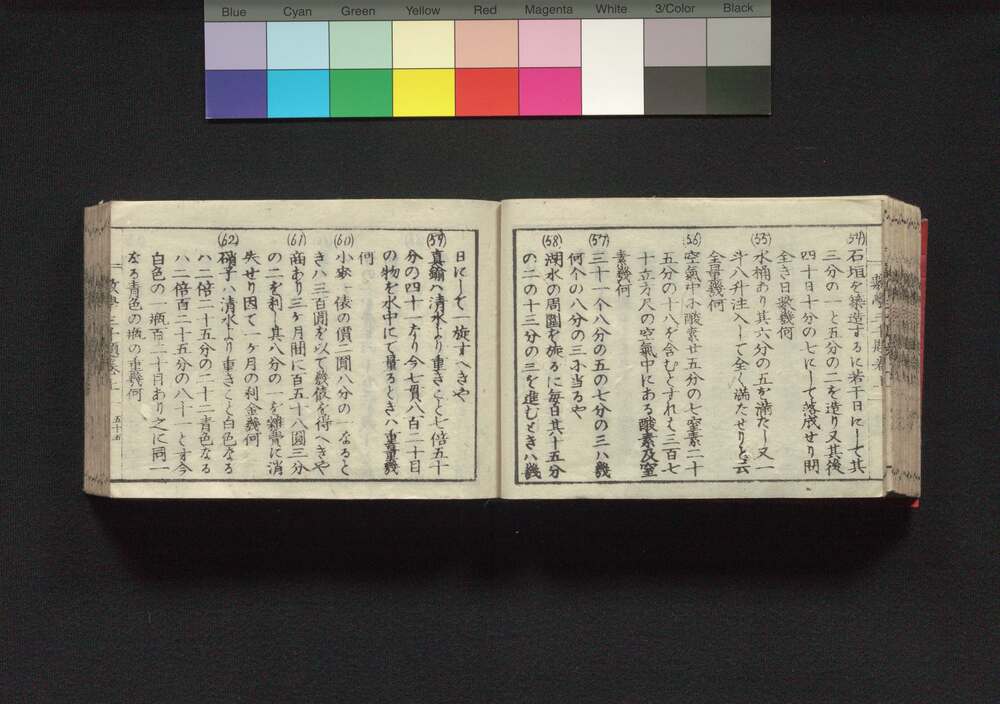 Blue Cyan Green Yellow Red Magenta White 3/Color Black
(54)
石垣を築造するに若干日にして其
三分の一と五分の二を造り又其後
四十日十分の七にして落成せり問
全き日數幾何
(55)
水桶あり其六分の五か滿たし又一
斗八升注入して全く滿たせりと云
全量幾何
(56)
空氣中ハ酸素廿五分の七窒素二十
五分の十八を含むとすれは三百七
十立方尺の空氣中にある酸素及窒
素幾何
(57)
三十一个八分の五の七分の三ハ幾
何个の八分の三に当るや
(58)
湖水の周圍を旅るに毎日其六十五分
の二の十三分の三を進むときハ幾
日にして一旋すへきや
(59)
真鍮ハ清水より重きこと七倍五十
分の四十一なり今七貫八百二十目
の物を水中にて量るときハ重量幾
何
(60)
小麥一俵の價二圓八分の一なると
きハ三百圓を以て幾俵を得へきや
(61)
商あり三ヶ月間に百五十八圓三分
の二を利し其八分の一を雜費に消
失せり因て一ヶ月の利金幾何
(62)
硝子ハ清水より重きこと白色なる
ハ二倍二十五分の二十二青色なる
ハ二倍百二十五分の八十一とす今
白色の一瓶百二十目あり之に同一
なる青色の瓶の重幾何
五十五